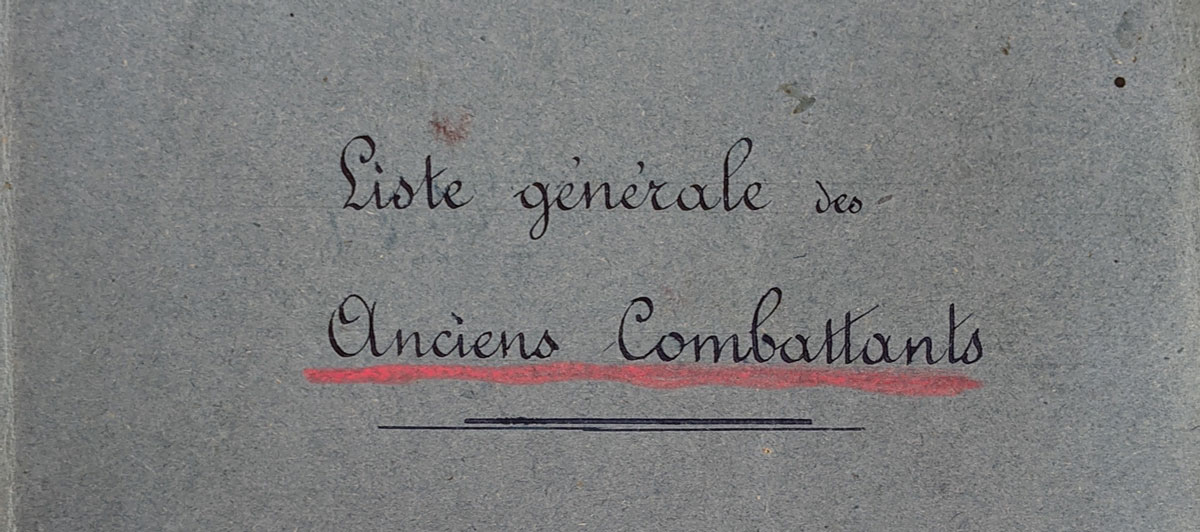 Liste générale des
Anciens Combattants